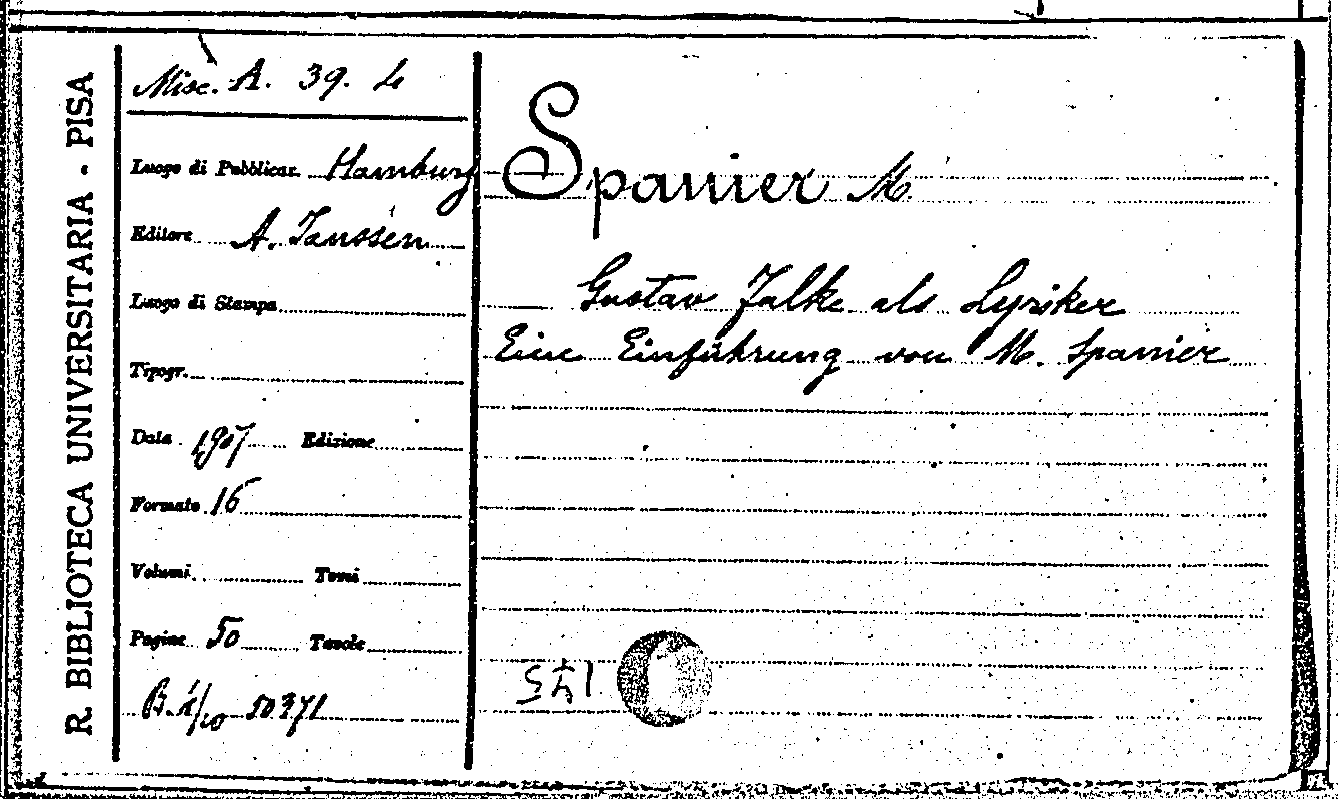 R. BIBLIOTECA UNIVERSITARIA - PISA
Misc. A. 39. 4
Luogo di Pubblicaz. Hamburg
Editore A. Janssen
Luogo di Stampa
Tipogr.
Data 1907 Edizione
Formato 16
Volumi Tomi
Pagine 50 Tavole
50371
Spanier M.
Gustav Falke als Lyriker
Eine Einführung von M. Spanier